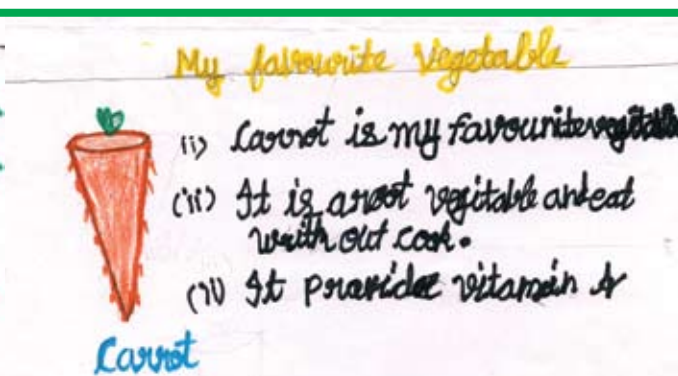 My favourite Vegetable
(i) Carrot is my favourite vegitable
(ii) It is a root vegitable and eat
with out cook.
(iii) It provides vitamin A
Carrot